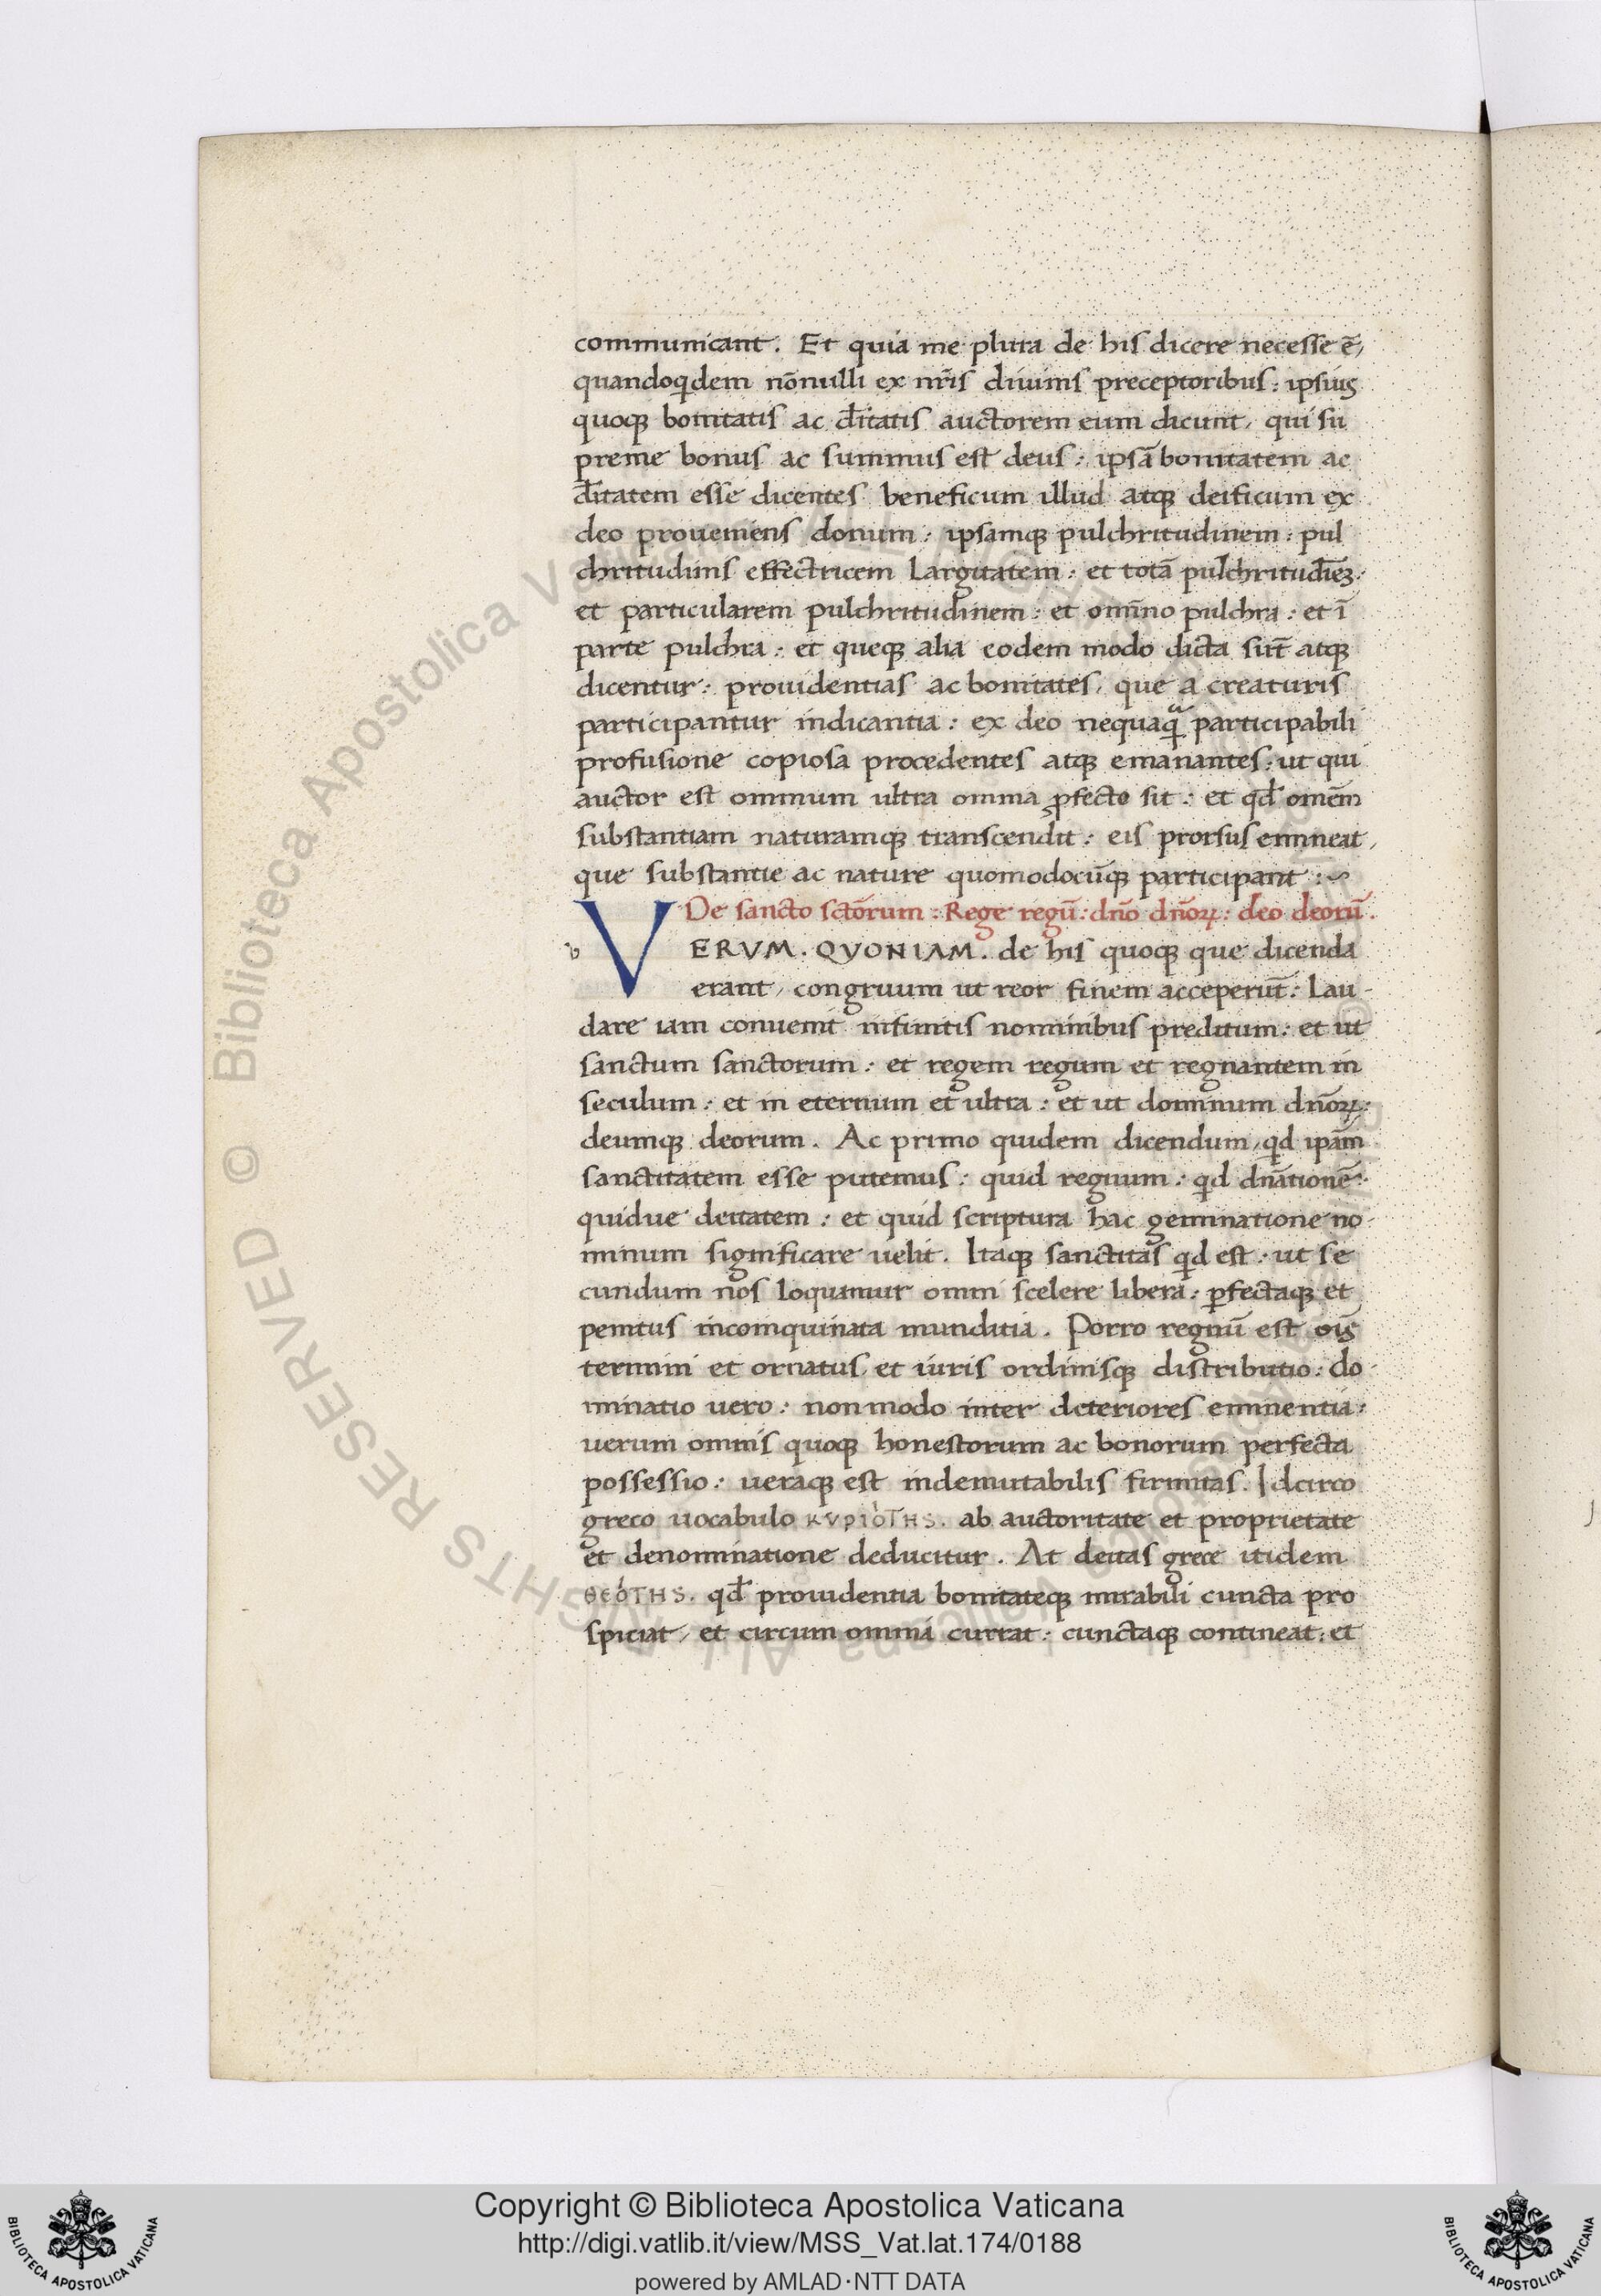 communicant. Et quia me plura de his dicere necesse ē,
quandoq̇dem nōnulli ex nr̄is diuinis preceptoribus: ipsius
quoq bonitatis ac d̄itatis auctorem eum dicunt, qui su
preme bonus ac summus est deus: ipsā bonitatem ac
d̄itatem esse dicentes beneficum illud atq deificum ex
deo proueniens donum: ipsamq pulchritudinem: pul
chritudinis effectricem largitatem: et totā pulchritudīeꝫ:
et particularem pulchritudinem: et omīno pulchra: et ī
parte pulchra: et queq alia eodem modo dicta sūt atq
dicentur: prouidentias ac bonitates, que a creaturis
participantur indicantia: ex deo nequaq̈ participabili
profusione copiosa procedentes atq emanantes: ut qui
auctor est omnium ultra omnia ꝓfecto sit: et qd̄ omēm
substantiam naturamq transcendit: eis prorsus emineat,
que substantie ac nature quomodocūq participant :~
De sancto sctōrum: Rege regū: dn̄o dn̄oꝝ: deo deorū.
b VERVM. QVONIAM. de his quoq que dicenda
erant, congruum ut reor finem acceperūt: Lau-
dare iam conuenit infinitis nominibus preditum: et ut
sanctum sanctorum: et regem regum et regnantem in
seculum: et in eternum et ultra: et ut dominum dn̄oꝝ:
deumq deorum. Ac primo quidem dicendum, qd ip̄am
sanctitatem esse putemus: quid regnum: qd dn̄ationē:
quidue deitatem: et quid scriptura hac geminatione no-
minum significare uelit. Itaq sanctitas qd est: ut se
cundum nos loquamur omni scelere libera: ꝑfectaq et
penitus incoinquinata munditia. Porro regnū est oīs
termini et ornatus, et iuris ordinisq distributio: do-
minatio uero: non modo inter deteriores eminentia:
uerum omnis quoq honestorum ac bonorum perfecta
possessio: ueraq est indemutabilis firmitas. Idcirco
greco uocabulo ΚΥΡΙΌΤΗS. ab auctoritate et proprietate
et denominatione deducitur. At deitas grece itidem
ΘΕΌΤΗS. qd̄ prouidentia bonitateq mirabili cuncta pro
spiciat, et circum omnia currat: cunctaq contineat: et
© Biblioteca Apostolica Vaticana ALL RIGHTS RESERVED
Copyright © Biblioteca Apostolica Vaticana
http://digi.vatlib.it/view/MSS_Vat.lat.174/0188
powered by AMLAD·NTT DATA
BIBLIOTECA APOSTOLICA VATICANA
BIBLIOTECA APOSTOLICA VATICANA